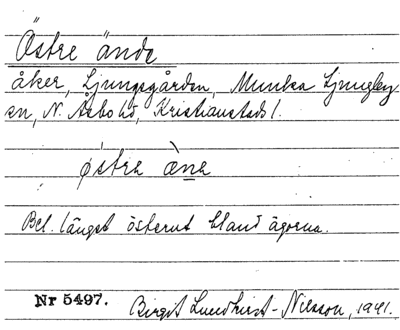 Östre ände
åker, Ljungsgården, Munka Ljungby
sn, N. Åsbo hd, Kristianstads l.
östra àna
Bel. längst österut bland ägorna.
Nr 5497. Birgit Lundkvist-Nilsson, 1941.